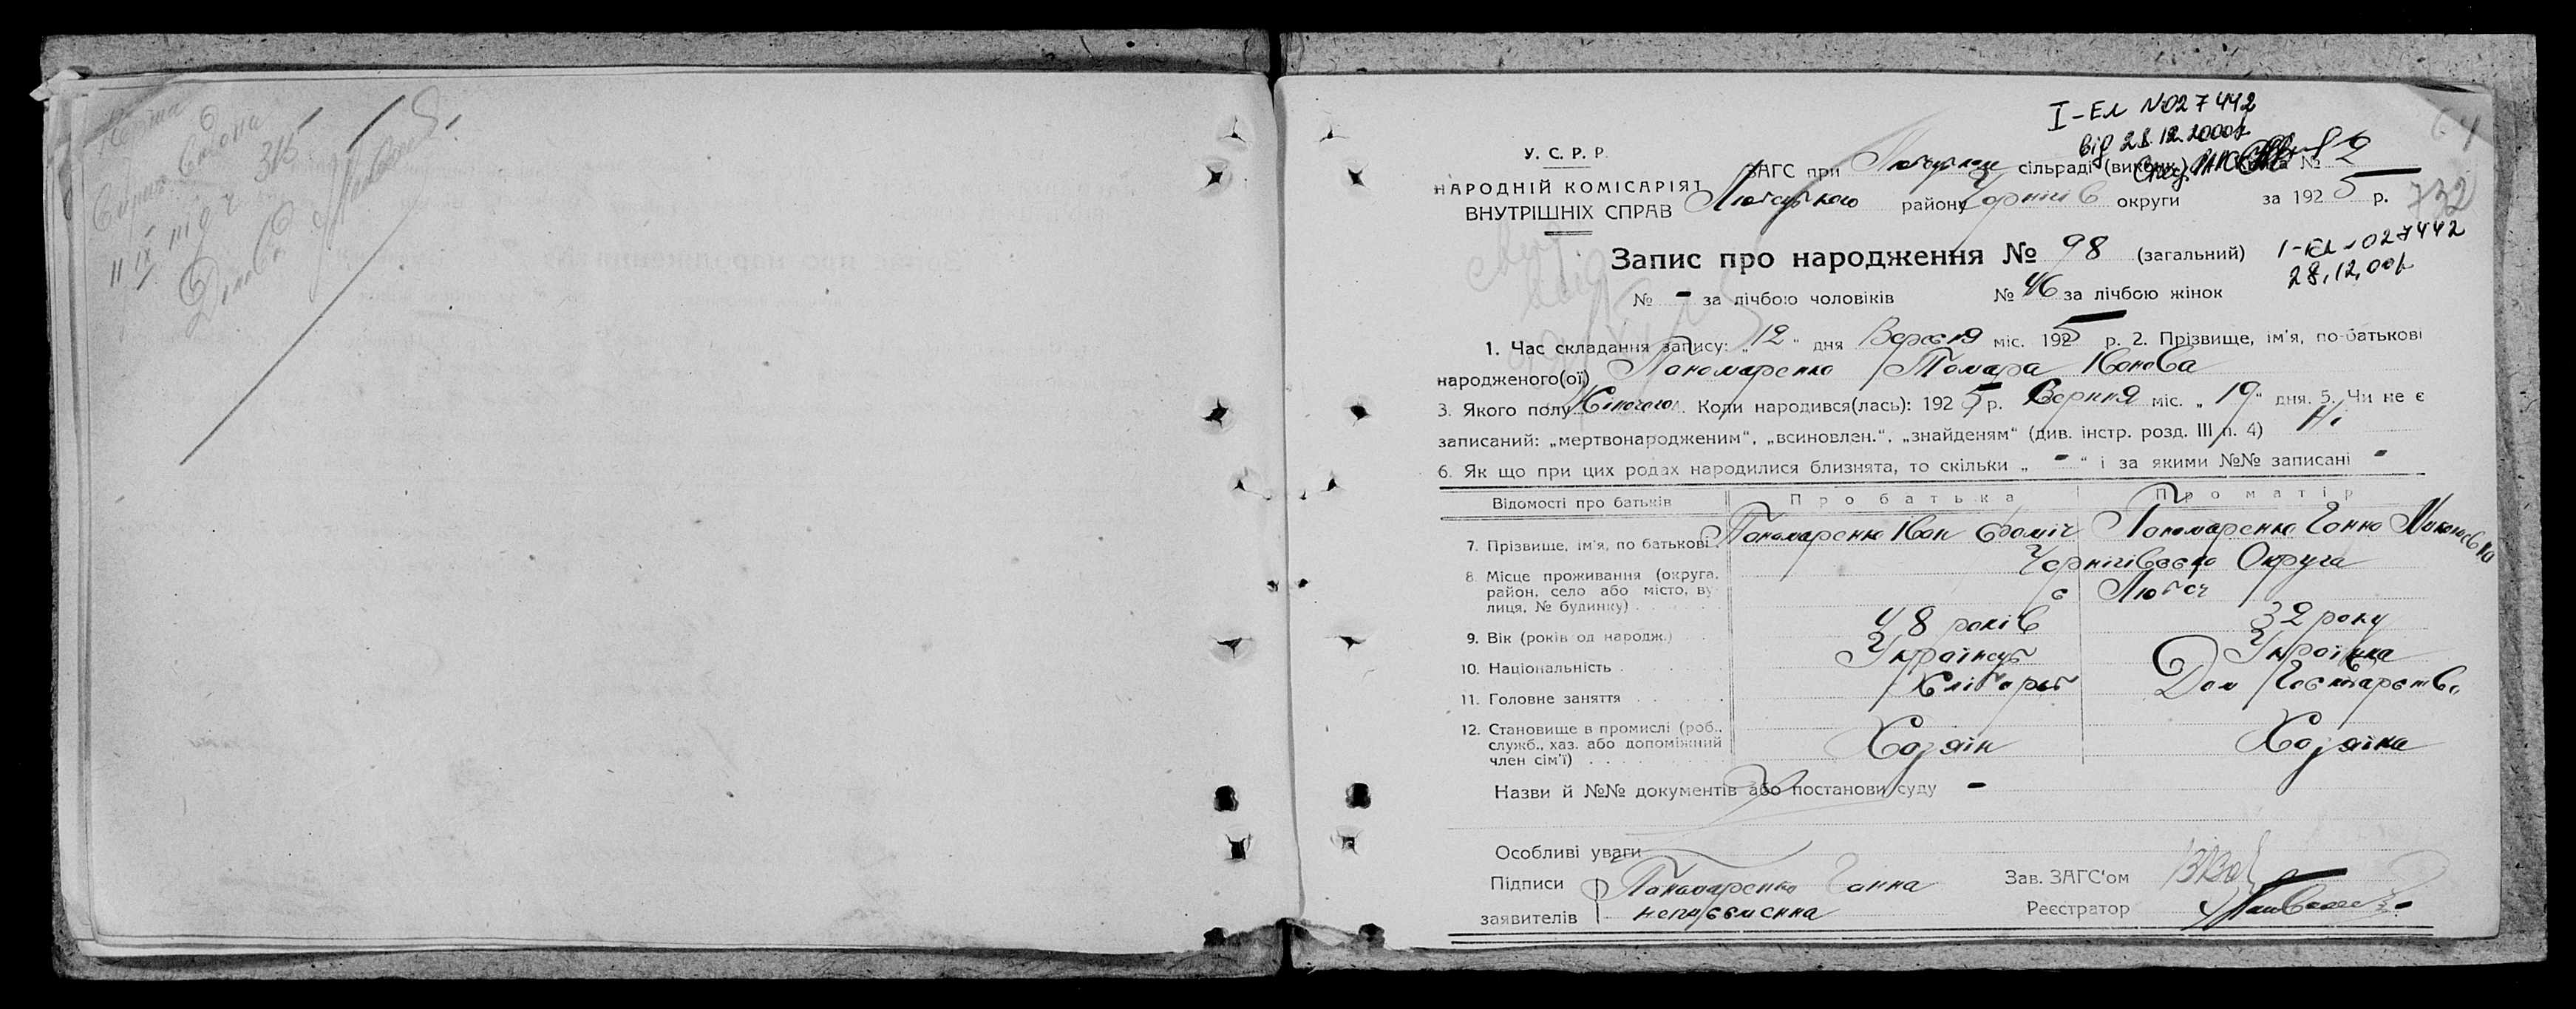 315
11 IX
I-Ел №027442
від 28.12.2000р
У. С. Р. Р.
ЗАГС при сільраді (викон.) №
НАРОДНІЙ КОМІСАРІЯТ
ВНУТРІШНІХ СПРАВ
Любецького району Чернігів округи за 1925 р.
732
Запис про народження № 98 (загальний)
І-Ел №027442
28.12.00р
№ - за лічбою чоловіків № 46 за лічбою жінок
1. Час складання запису: „12" дня Вересня міс. 1925 р. 2. Прізвище, ім'я, по-батькові
народженого(ої) Пономаренко Тамара Іванова
3. Якого полу Жіночого. Коли народився(лась): 1925 р. Серпня міс. „19" дня. 5. Чи не є
записаний: „мертвонародженим", „всиновлен.", „знайденям" (див. інстр. розд. III п. 4) Ні
6. Як що при цих родах народилися близнята, то скільки „-" і за якими №№ записані -
Відомості про батьків Про батька Про матір
7. Прізвище, ім'я, по батькові. Пономаренко Іван Пономаренко Ганна Миколаєвна
8. Місце проживання (округа, район, село або місто, вулиця, № будинку) Чернігівська Округа
с Любеч
9. Вік (років од народж.) 48 років 32 року
10. Національність Українець Українка
11. Головне заняття Хлібороб Дом Господарство
12. Становище в промислі (роб., служб., хаз. або допоміжний член сім'ї) Хазяїн Хазяїка
Назви й №№ документів або постанови суду -
Особливі уваги
Підписи заявителів Пономаренко Ганна
неписьменна
Зав. ЗАГС'ом
Реєстратор